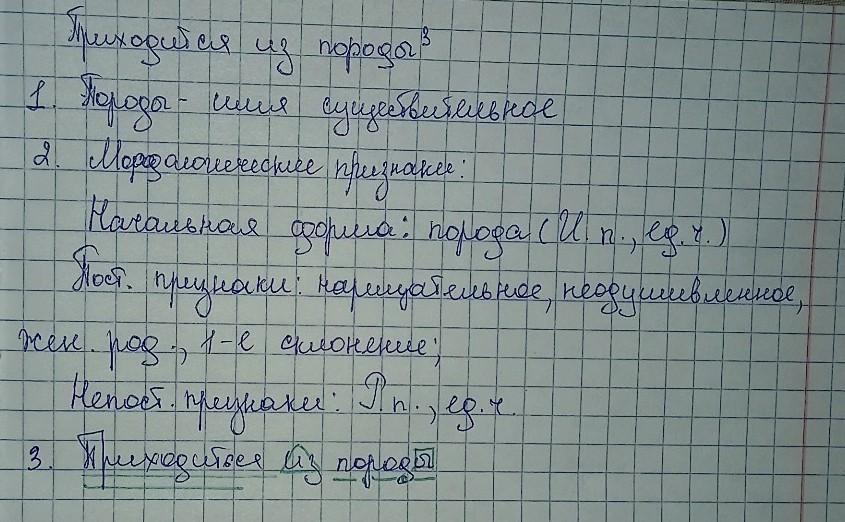 Приходится из породы³
1. Породы - имя существительное
2. Морфологические признаки:
Начальная форма: порода (И. п., ед. ч.)
Пост. признаки: нарицательное, неодушевленное,
жен. род., 1-е склонение;
Непост. признаки: Р. п., ед. ч.
3. Приходиться из породы